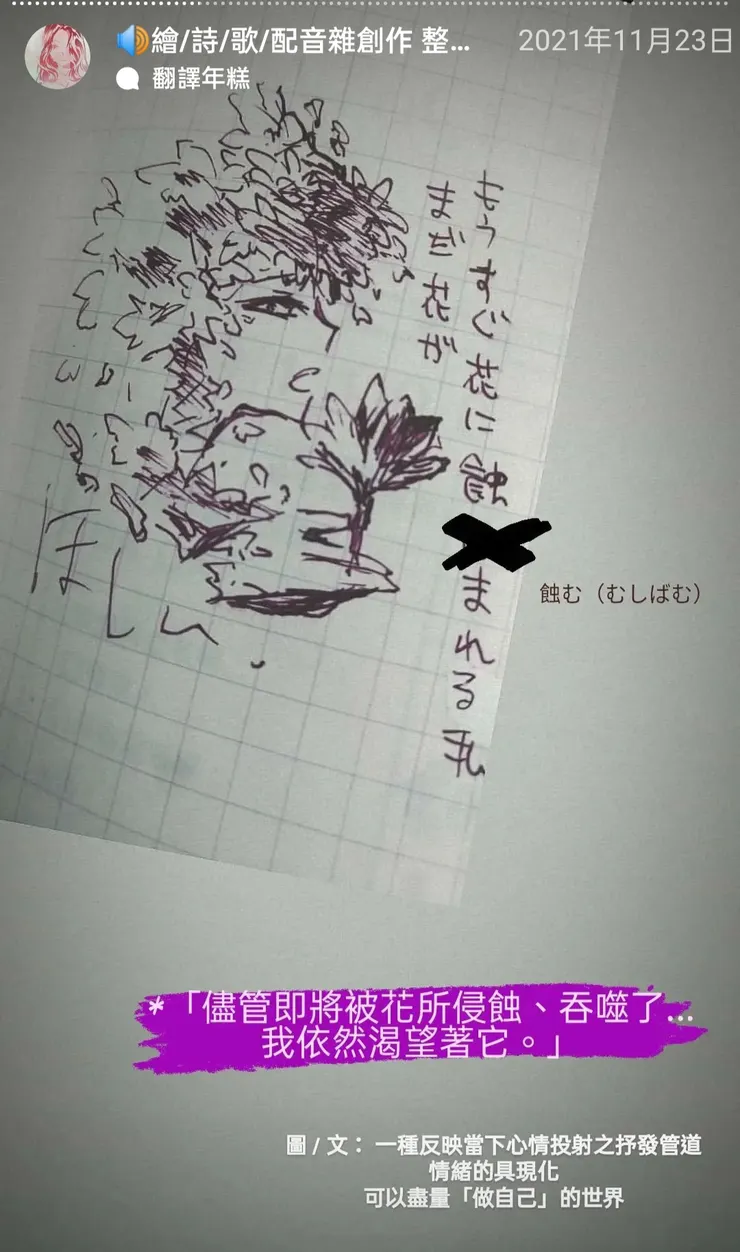 🔊繪/詩/歌/配音雜創作 整...
2021年11月23日
翻譯年糕
もうすぐ花に蝕まれる私
まだ花が
ほしい
蝕む（むしばむ）
*「儘管即將被花所侵蝕、吞噬了...
我依然渴望著它。」
圖 / 文： 一種反映當下心情投射之抒發管道
情緒的具現化
可以盡量「做自己」的世界